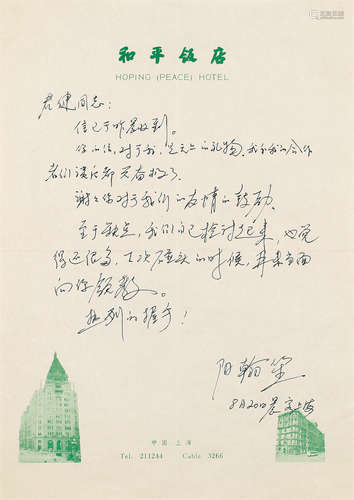 和平饭店
HOPING (PEACE) HOTEL
君健同志：
信已于昨晨收到。
你的信，对于我，是无上的礼物，我和我的合作
者们读后都兴奋极了。
谢谢你对于我们的友情的鼓励。
至于缺点，我们自己检讨起来，也觉
得还很多，下次碰头的时候，再来当面
向你领教。
热烈的握手！
阳翰笙
8月20日晨于上海
中国 上海
Tel. 211244 Cable 3266